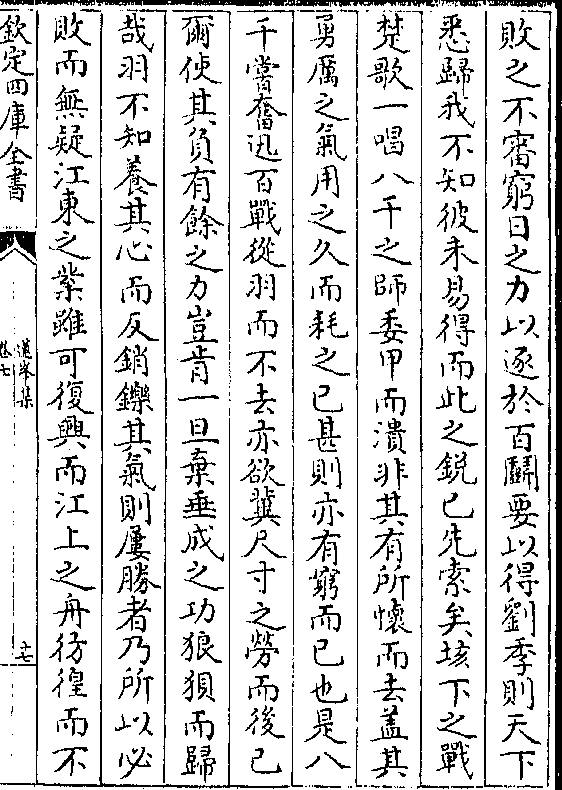 敗之不審窮日之力以逐於百鬭要以得劉季則天下
悉歸我不知彼未易得而此之鋭已先索矣垓下之戰
楚歌一唱八千之師委甲而潰非其有所懷而去盖其
勇厲之氣用之久而耗之已甚則亦有窮而已也是八
千嘗奮迅百戰從羽而不去亦欲冀尺寸之勞而後已
爾使其負有餘之力豈肯一旦棄垂成之功狼狽而歸
哉羽不知養其心而反銷鑠其氣則屢勝者乃所以必
敗而無疑江東之業雖可復興而江上之舟彷徨而不
欽定四庫全書
卷七
十七